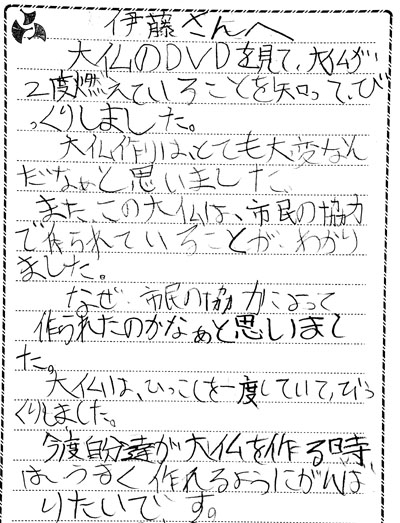 伊藤さんへ
大仏のDVDを見て、大仏が
2度燃えていることを知って、び
っくりしました。
大仏作りは、とても大変なん
だなぁと思いました。
また、この大仏は、市民の協力
で作られていることが、わかり
ました。
なぜ、市民の協力によって
作られたのかなぁと思いまし
た。
大仏は、ひっこしを一度していて、びっ
くりしました。
今度自分達が大仏を作る時
は、うまく作れるようにがんば
りたいです。